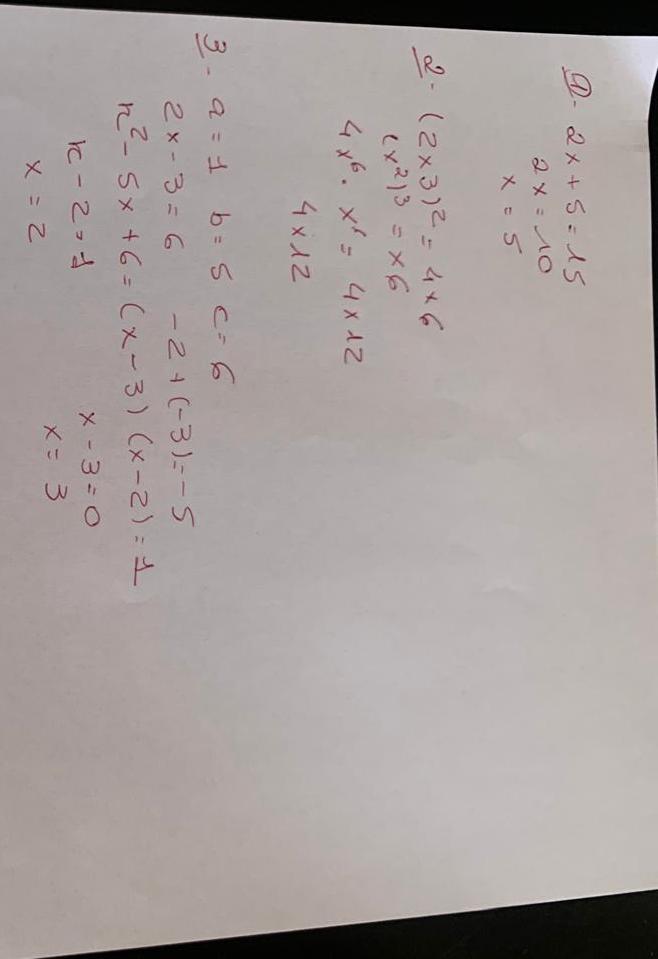 1. 2x + 5 = 15
2x = 10
x = 5
2. (2x3)² = 4x6
(x²)³ = x6
4x⁶ · x⁶ = 4x12
4x12
3. a = 1 b = 5 c = 6
2x - 3 = 6 -2 + (-3) = -5
x² - 5x + 6 = (x - 3) (x - 2) = 1
x - 2 = 1 x - 3 = 0
x = 2 x = 3